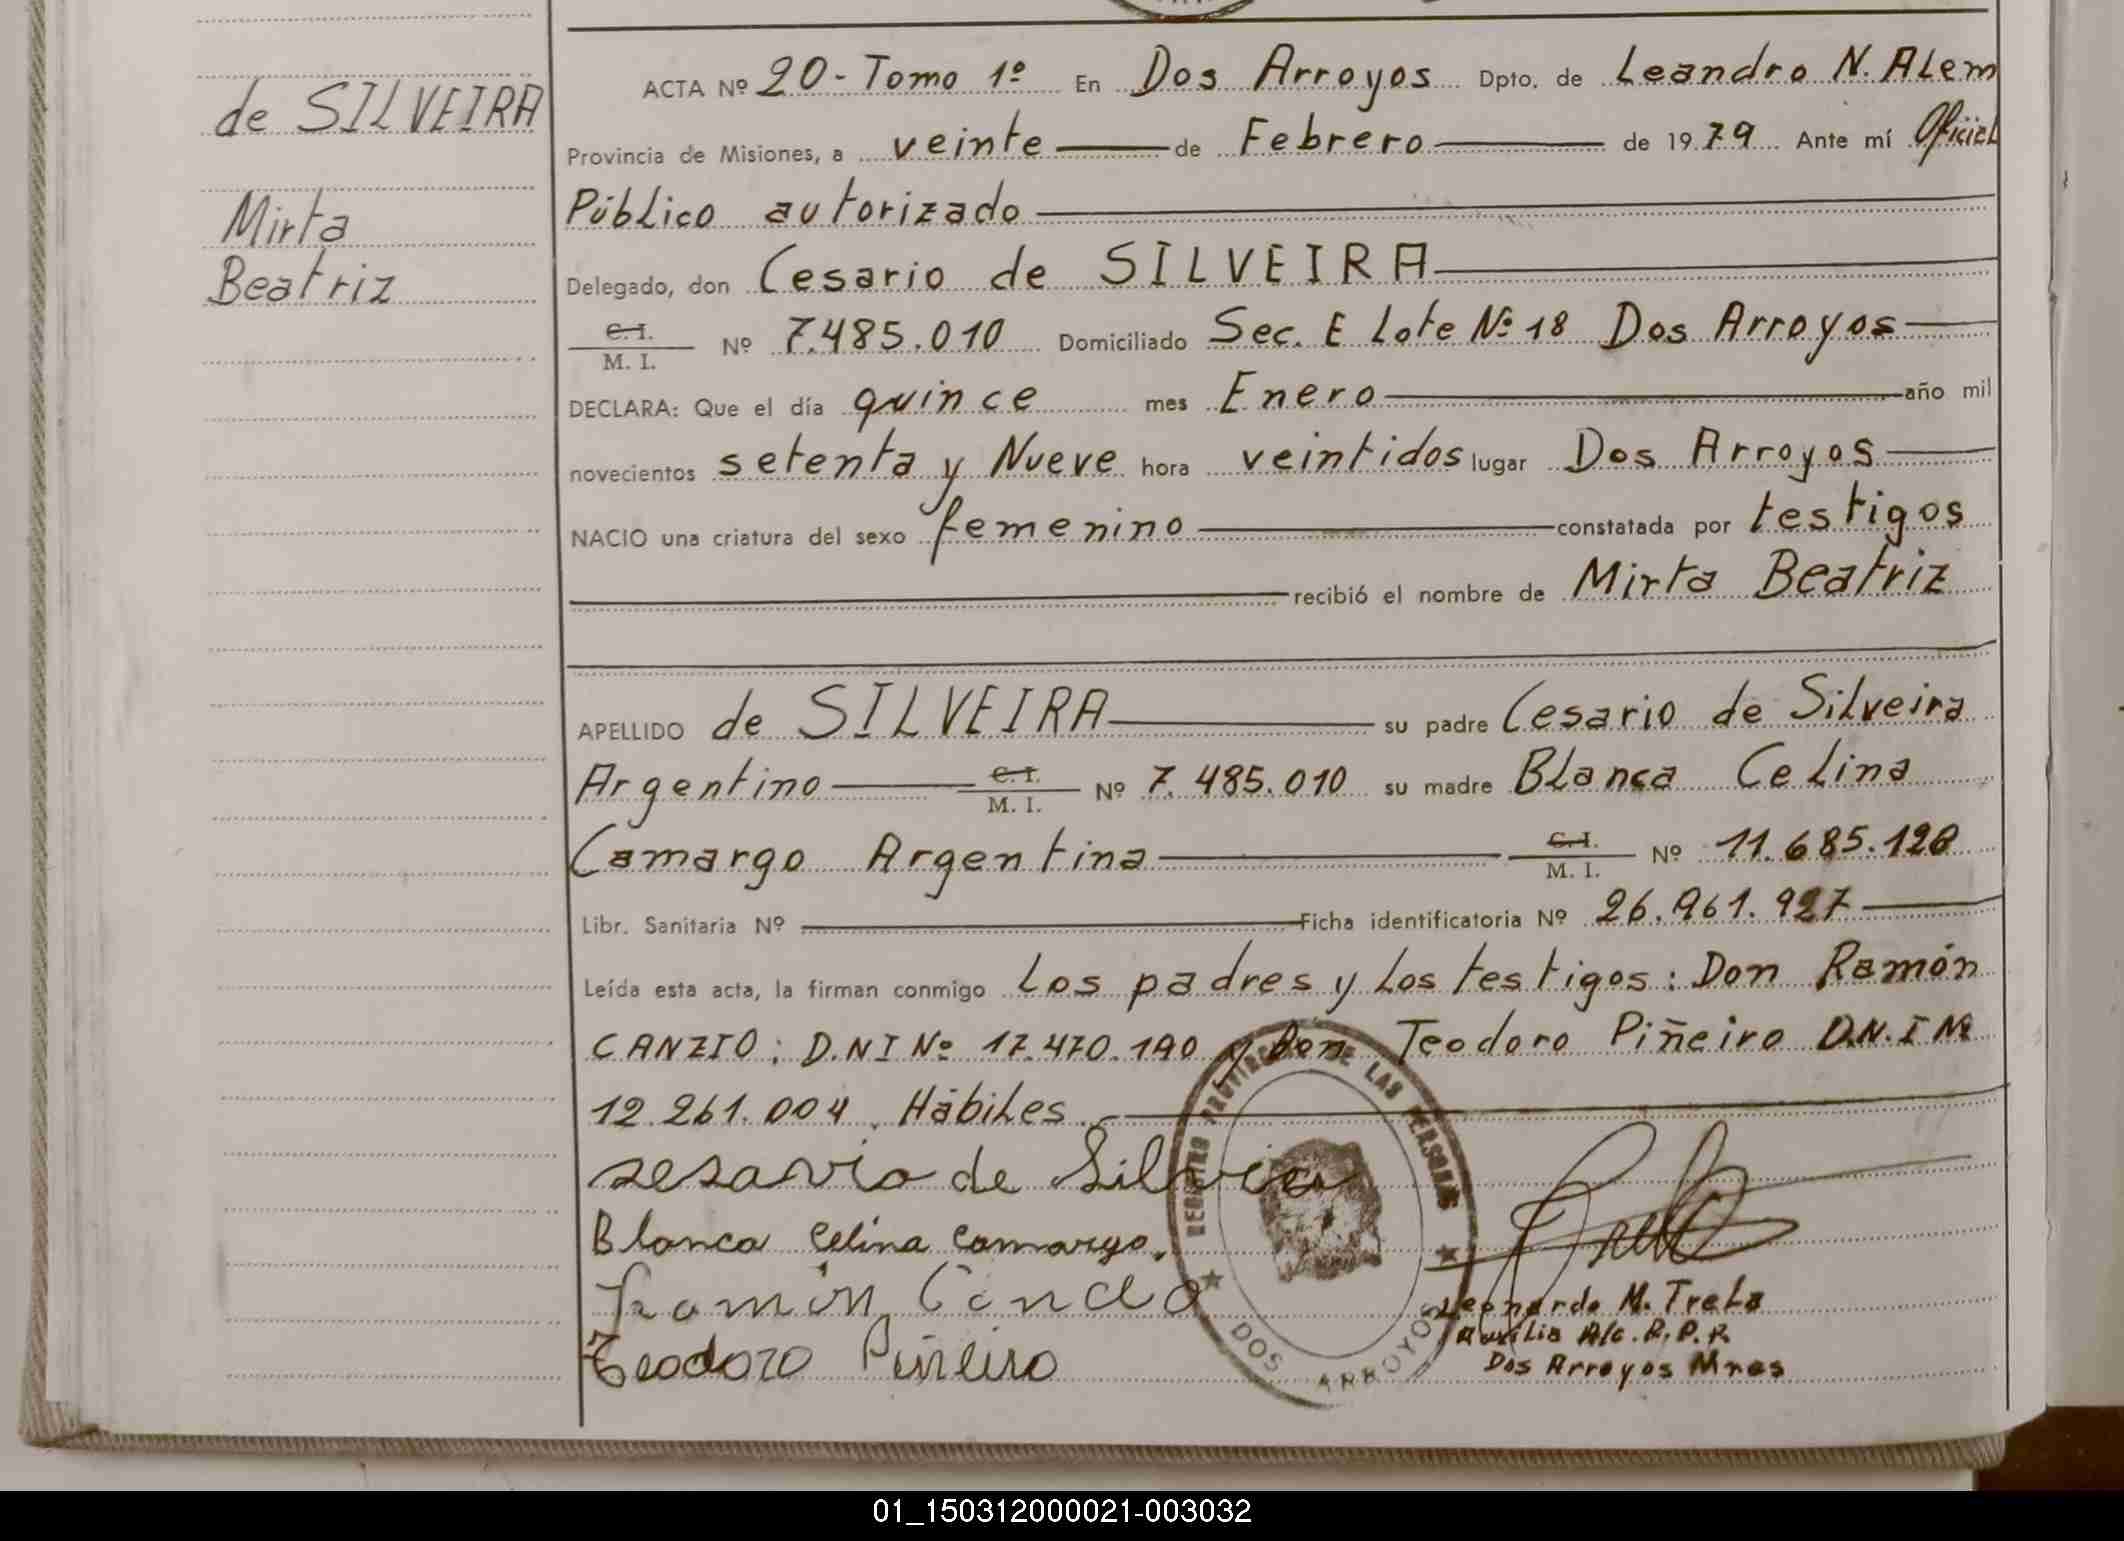 de SILVEIRA
Mirta
Beatriz
ACTA Nº 20 - Tomo 1º En Dos Arroyos Dpto. de Leandro N. ALem
Provincia de Misiones, a veinte de Febrero de 1979 Ante mí Oficial
Público autorizado
Delegado, don Cesario de SILVEIRA
C. I.
M. I. Nº 7.485.010 Domiciliado Sec. E Lote Nº 18 Dos Arroyos
DECLARA: Que el día quince mes Enero año mil
novecientos setenta y Nueve hora veintidos lugar Dos Arroyos
NACIO una criatura del sexo femenino constatada por testigos
recibió el nombre de Mirta Beatriz
APELLIDO de SILVEIRA su padre Cesario de Silveira
Argentino C. I. M. I. Nº 7.485.010 su madre Blanca Celina
Camargo Argentina C. I. M. I. Nº 11.685.128
Libr. Sanitaria Nº Ficha identificatoria Nº 26.961.927
Leída esta acta, la firman conmigo Los padres y Los testigos: Don Ramón
CANZIO: D.N I Nº 17.470.190 y Don Teodoro Piñeiro D.N.I Nº
12.261.004. Hábiles
sesario de Silveira
Blanca Celina Camargo.
Ramón
Teodoro Piñeiro
REGISTRO PROVINCIAL DE LAS PERSONAS
DOS ARROYOS
Leonardo M. Trela
Auxilia A/c. R. P. P.
Dos Arroyos Mnes
01_150312000021-003032